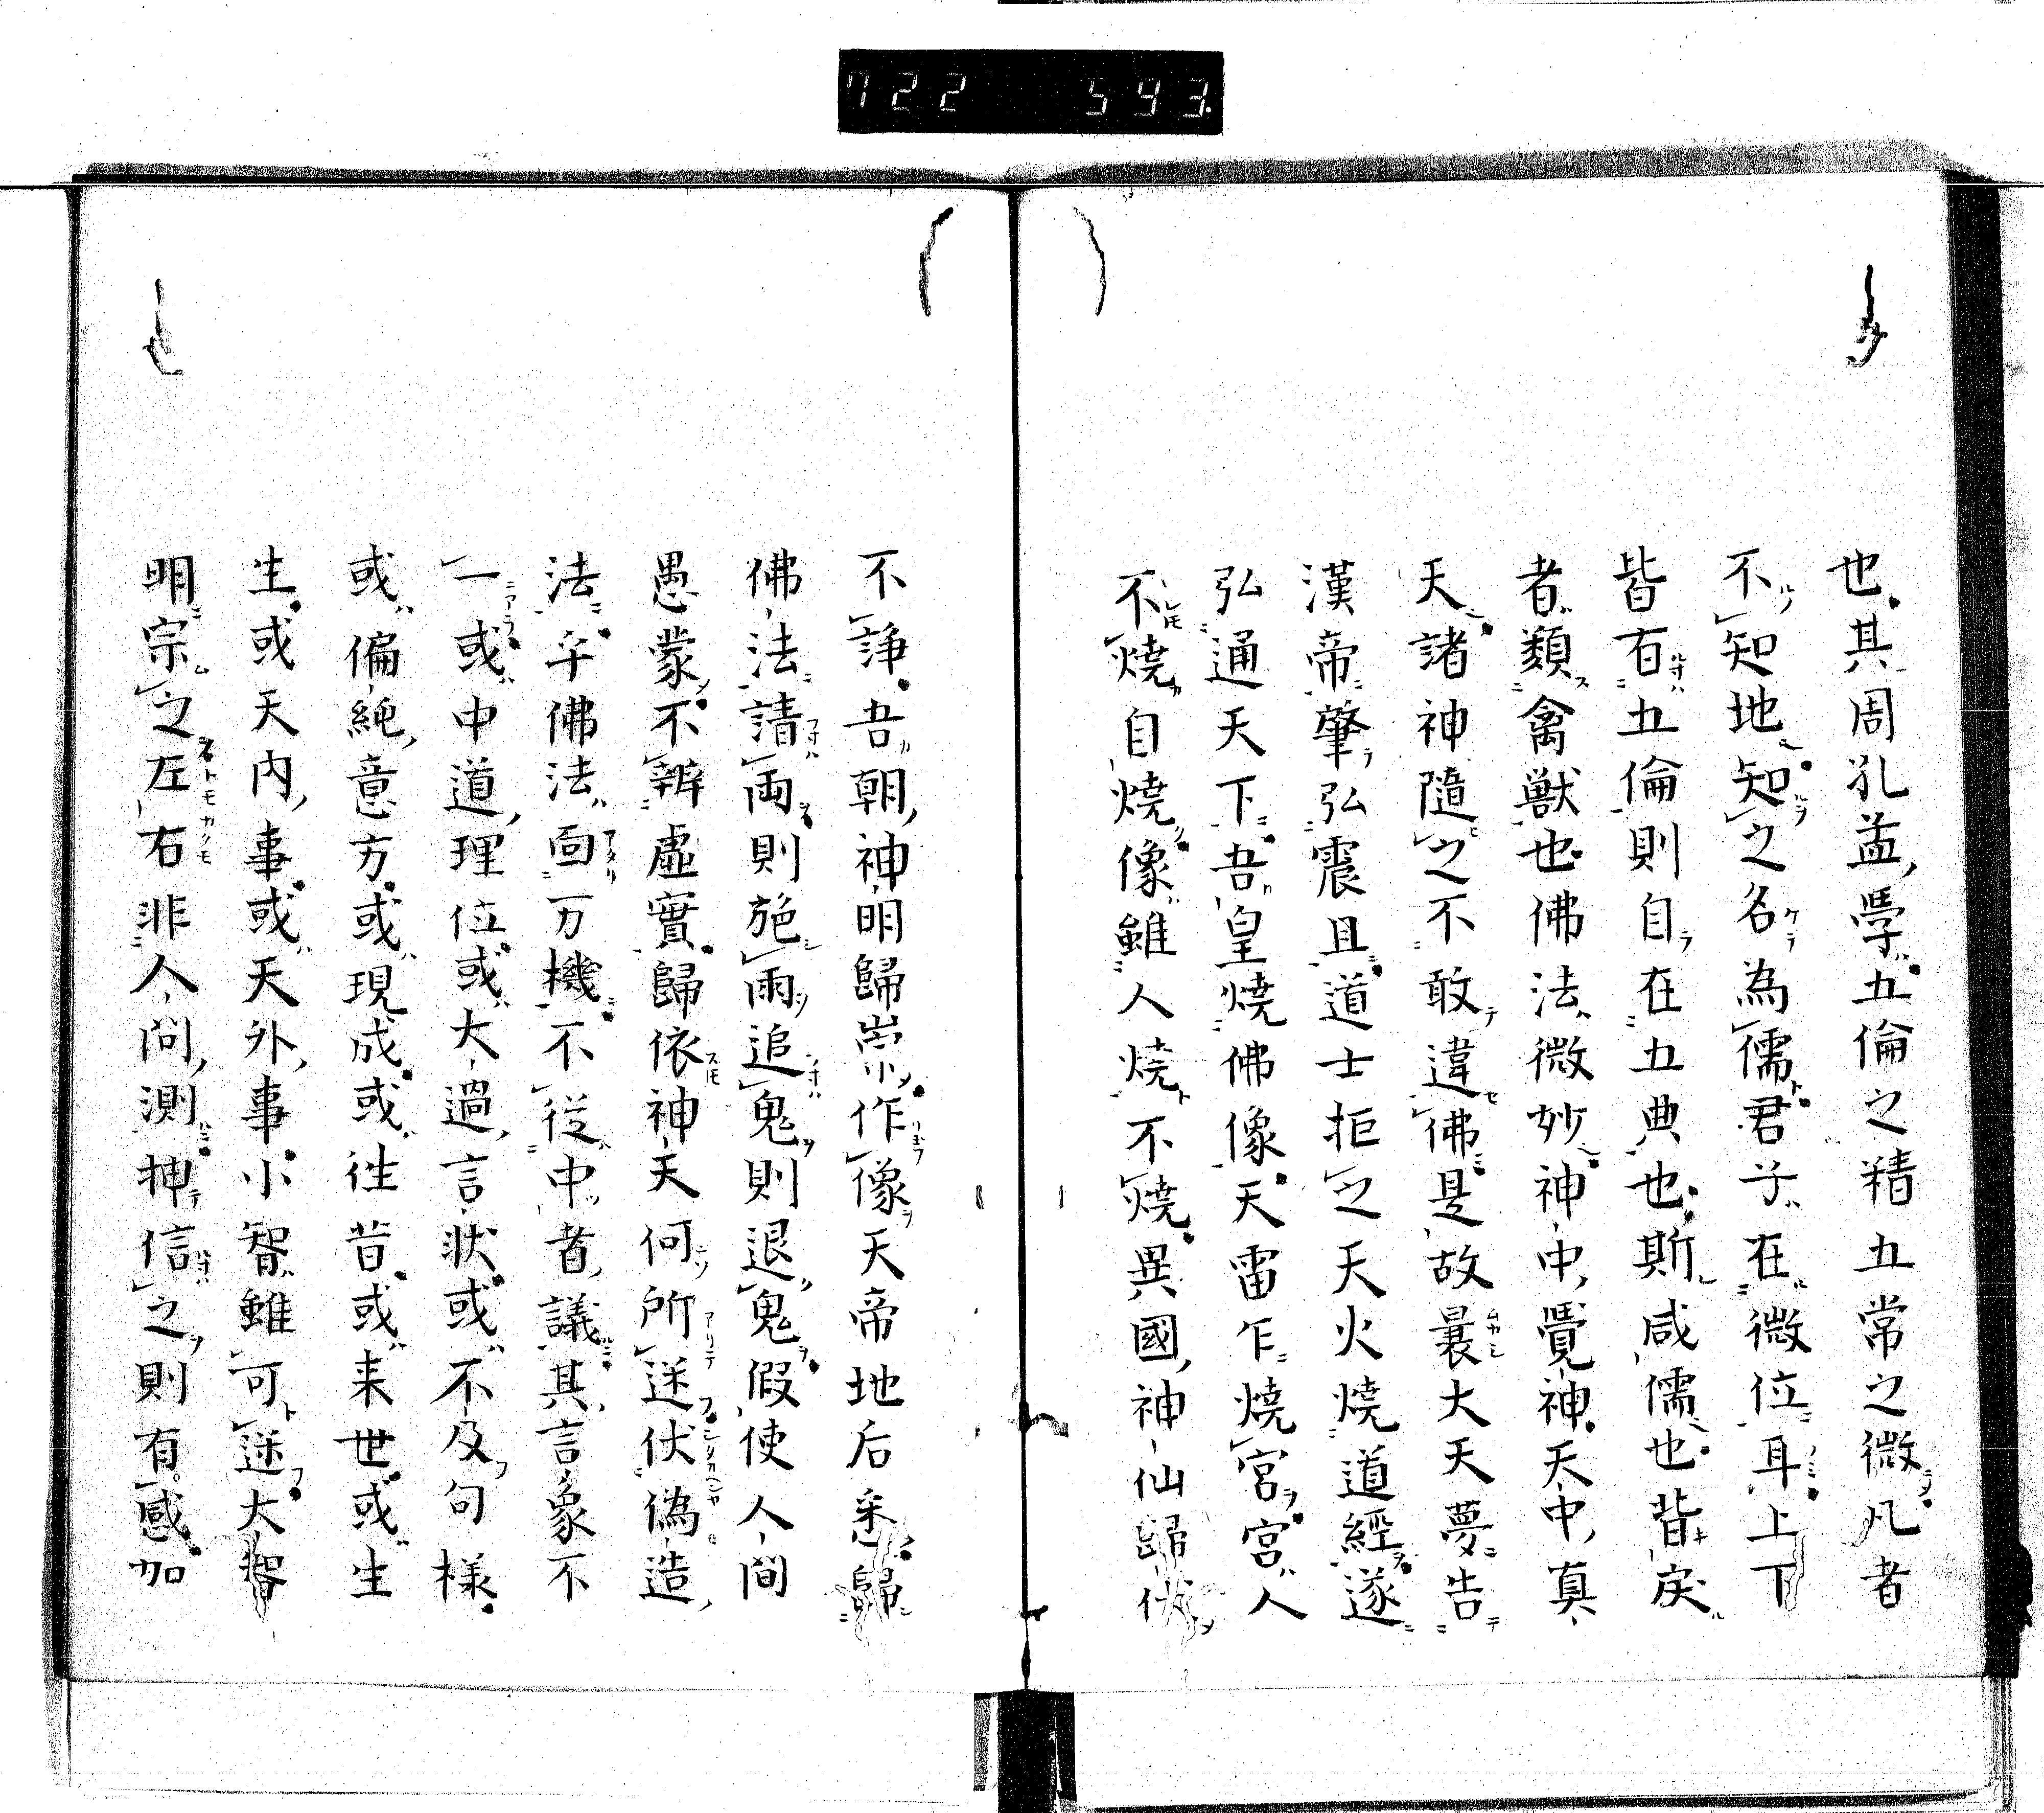 722 593.
也其周孔孟學五倫之精五常之微凡者
不知地知之名為儒君子在微位耳上下
皆有五倫則自在五典也斯咸儒也背戾
者類禽獸也佛法微妙神中覺神天中真
天諸神隨之不敢違佛是故曩大天夢告
漢帝肇弘震旦道士拒之天火燒道經遂
弘通天下吾皇燒佛像天雷乍燒宮宮人
不燒自燒像雖人燒不燒異國神仙歸伏
不諍吾朝神明歸崇作像天帝地后悉歸
佛法請雨則施雨追鬼則退鬼假使人間
愚蒙不辨虛實歸依神天何所迷伏偽造
法乎佛法面万機不從中者議其言象不
一或中道理位或大過言狀或不及句樣
或偏純意方或現成或往昔或来世或生
生或天內事或天外事小智雖可迷大智
明宗之左右非人間測抻信之則有感加